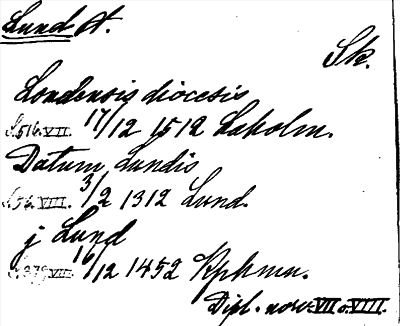 Lund st.
Sk.
Londensis diocesis
S.516.VII. 17/12 1512 Laholm.
Datum Lundis
S.56.VIII. 3/2 1312 Lund.
j Lund
S.379.VIII. 16/12 1452 Kphmn.
Dipl. norv. VII o. VIII.